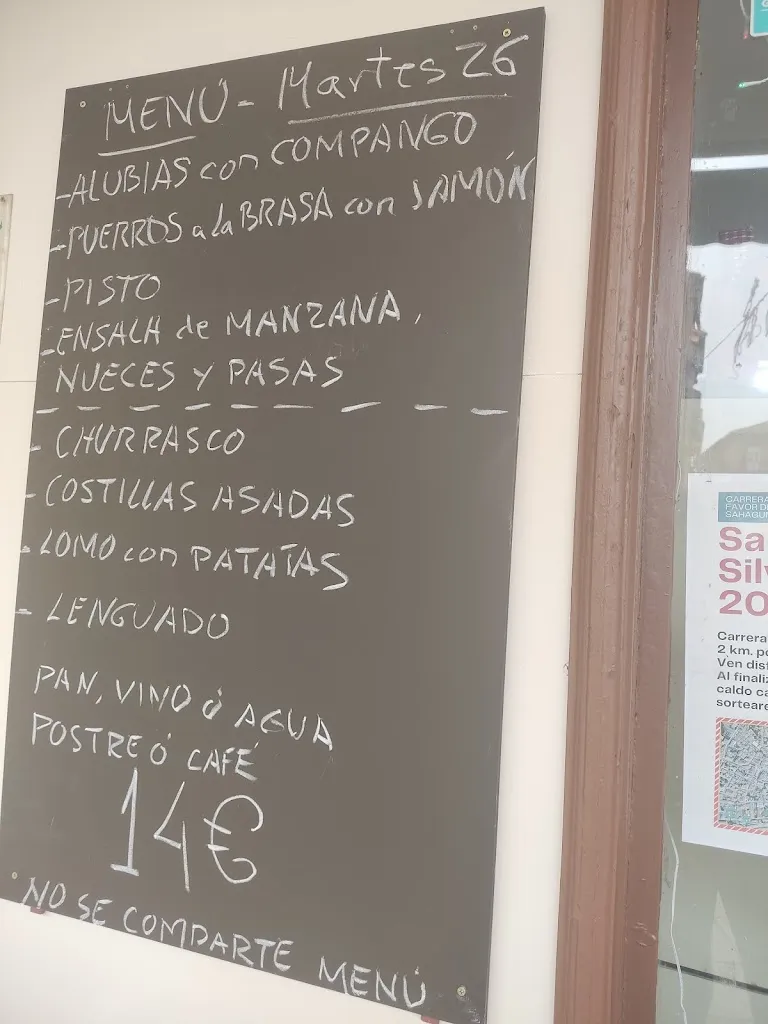 MENÚ - Martes 26
-ALUBIAS con COMPANGO
-PUERROS a la BRASA con JAMÓN
-PISTO
-ENSALA de MANZANA,
NUECES Y PASAS
- CHURRASCO
- COSTILLAS ASADAS
- LOMO con PATATAS
- LENGUADO
PAN, VINO ó AGUA
POSTRE Ó CAFÉ
14€
NO SE COMPARTE MENÚ
CARRERA
FAVOR D
SAHAGU
Sa
Silv
20
Carrera
2 km. p
Ven dis
Al finaliz
caldo ca
sorteare